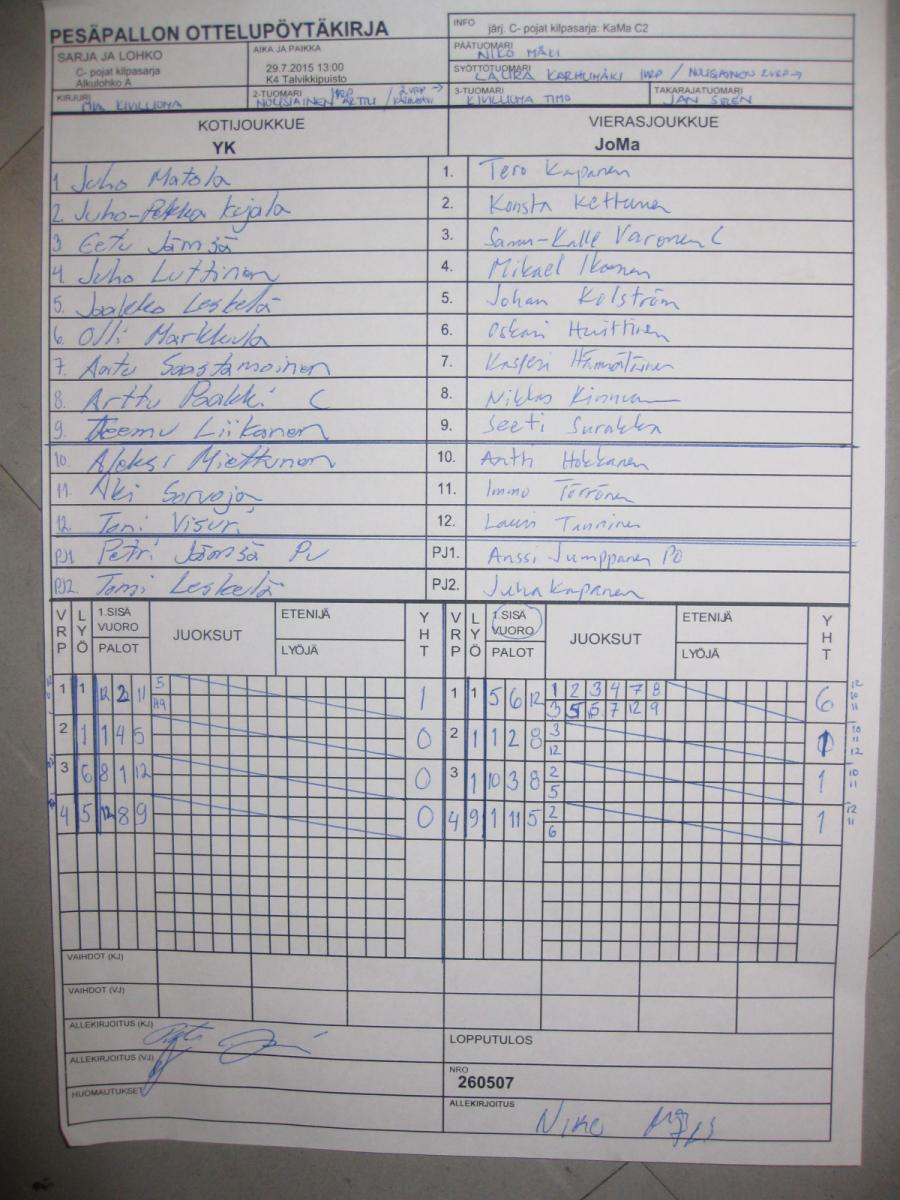 PESÄPALLON OTTELUPÖYTÄKIRJA
INFO
järj. C- pojat kilpasarja: KaMa C2
SARJA JA LOHKO
C- pojat kilpasarja
Alkulohko A
AIKA JA PAIKKA
29.7.2015 13:00
K4 Talvikkipuisto
PÄÄTUOMARI
NIKO MÄKI
SYÖTTÖTUOMARI
LAURA KARHUMÄKI 1VRP / NOUSIAINEN 2VRP→
KIRJURI
MIA KIVILUOMA
2-TUOMARI
NOUSIAINEN ARTTU 1VRP / 2VRP→
3-TUOMARI
KIVILUOMA TIMO
TAKARAJATUOMARI
JAN SIREN
KOTIJOUKKUE
YK
VIERASJOUKKUE
JoMa
1 Juho Matola
1. Tero Kapanen
2. Juho-Pekka Kujala
2. Konsta Kettunen
3 Eetu Jämsä
3. Samu-Kalle Varonen C
4. Juho Luttinen
4. Mikael Ikonen
5. Jaakko Leskelä
5. Johan Kolström
6. Olli Markkula
6. Oskari Huittinen
7. Aatu Saastamoinen
7. Kasperi Hämäläinen
8. Arttu Paakki C
8. Niklas Kinnunen
9. Teemu Liikanen
9. Seeti Surakka
10. Aleksi Miettunen
10. Antti Hokkanen
11. Aki Sarvoja
11. Immo Törrönen
12 Tomi Visuri
12. Lauri Tanninen
PJ1 Petri Jämsä PV
PJ1. Anssi Jumppanen PO
PJ2. Tomi Leskelä
PJ2. Juha Kapanen
VRP LYÖ 1.SISÄ VUORO PALOT JUOKSUT ETENIJÄ LYÖJÄ YHT
VRP LYÖ 1.SISÄ VUORO PALOT JUOKSUT ETENIJÄ LYÖJÄ YHT
1 1 12 2 11 5 1
1 1 5 6 12 1 2 3 4 7 8 6
3 5 5 7 12 9
2 1 1 4 5 0
2 1 1 2 8 3 12 1
3 6 8 1 12 0
3 1 10 3 8 2 5 1
4 5 12 8 9 0
4 9 1 11 5 2 6 1
VAIHDOT (KJ)
VAIHDOT (VJ)
ALLEKIRJOITUS (KJ)
ALLEKIRJOITUS (VJ)
HUOMAUTUKSET
LOPPUTULOS
NRO
260507
ALLEKIRJOITUS
Niko